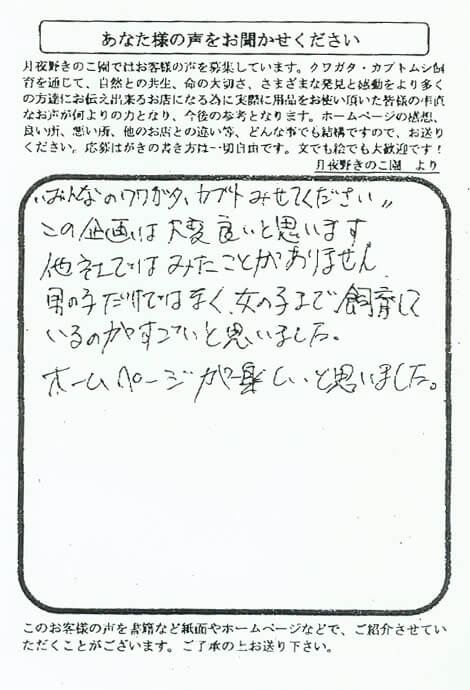 あなた様の声をお聞かせください
月夜野きのこ園ではお客様の声を募集しています。クワガタ・カブトムシ飼
育を通じて、自然との共生、命の大切さ、さまざまな発見と感動をより多く
の方達にお伝え出来るお店になる為に実際に用品をお使い頂いた皆様の率直
なお声が何よりの力となり、今後の参考となります。ホームページの感想、
良い所、悪い所、他のお店との違い等、どんな事でも結構ですので、お送り
ください。応募はがきの書き方は一切自由です。文でも絵でも大歓迎です！
月夜野きのこ園 より
"みんなのクワガタ、カブトみせてください"
この企画は大変良いと思います
他社ではみたことがありません。
男の子だけではなく、女の子まで飼育して
いるのがすごいと思いました。
ホームページが楽しいと思いました。
このお客様の声を書籍など紙面やホームページなどで、ご紹介させてい
ただくことがございます。ご了承の上お送り下さい。